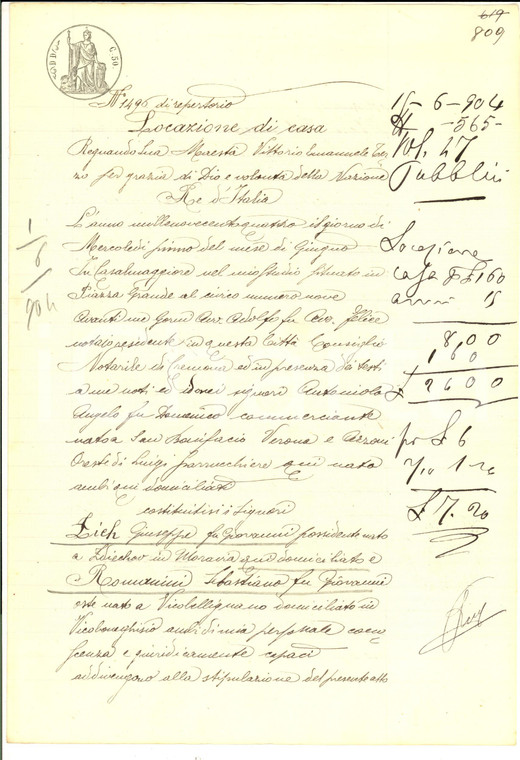 619
809
C. 50
N 1496 di repertorio
Locazione di casa
Regnando Sua Maestà Vittorio Emanuele Ter
zo per grazia di Dio e volontà della Nazione
Re d'Italia
L'anno millenovecentoquattro il giorno di
Mercoledì primo del mese di Giugno
In Casalmaggiore nel mio studio situato in
Piazza Grande al civico numero nove
avanti me Avv. Adolfo fu Avv. Felice
notaio residente in questa Città Consiglio
Notarile di Cremona ed in presenza dei testi
a me noti ed idonei signori
Angelo fu Domenico commerciante
nato a San Bonifacio Verona e
Oreste di Luigi parrucchiere qui nato
ambi qui domiciliati
costituitisi i Signori
Zich Giuseppe fu Giovanni possidente nato
a in Moravia qui domiciliato e
Romanini Sebastiano fu Giovanni
oste nato a Vicobellignano domiciliato in
Vicoboneghisio ambi di mia personale cono
scenza e giuridicamente capaci
addivengono alla stipulazione del presente atto
1
6
904
15-6-904
-565-
Vol. 27
Pubblici
Locazione
casa £ 160
anni 15
800
160
£ 2600
pr £ 6
1 20
£ 7.20